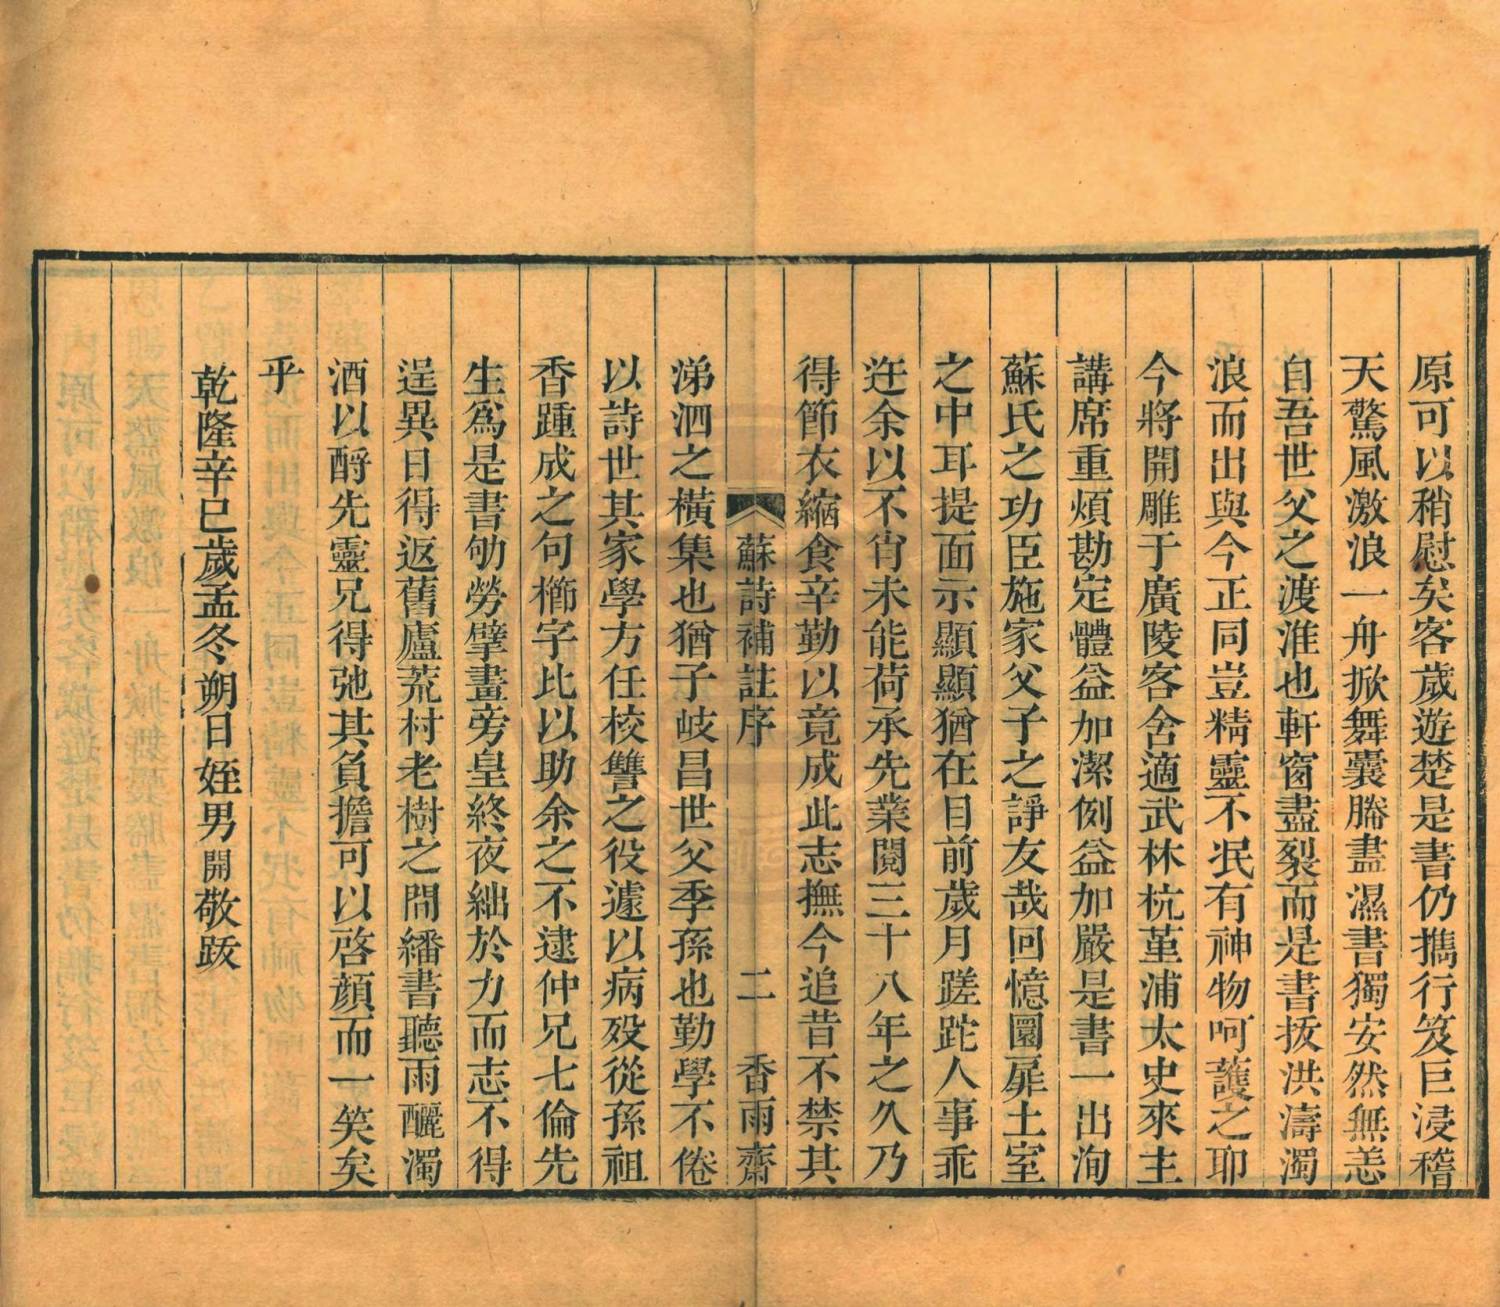 原可以稍慰矣客歲遊楚是書仍擕行笈巨浸稽
天驚風激浪一舟掀舞囊縢盡濕書獨安然無恙
自吾世父之渡淮也軒窗盡裂而是書扳洪濤濁
浪而出與今正同豈精靈不泯有神物呵護之耶
今將開雕于廣陵客舍適武林杭堇浦太史來主
講席重煩勘定體益加潔例益加嚴是書一出洵
蘇氏之功臣施家父子之諍友哉回憶圜扉土室
之中耳提面示顯顯猶在目前歲月蹉跎人事乖
迕余以不肖未能荷承先業閱三十八年之久乃
得節衣縮食辛勤以竟成此志撫今追昔不禁其
蘇詩補註序 二 香雨齋
涕泗之橫集也猶子岐昌世父季孫也勤學不倦
以詩世其家學方任校讐之役遽以病歿從孫祖
香踵成之句櫛字比以助余之不逮仲兄七倫先
生為是書劬勞擘畫旁皇終夜絀於力而志不得
逞異日得返舊廬荒村老樹之間繙書聽雨釃濁
酒以酹先靈兄得弛其負擔可以啓顔而一笑矣
乎
乾隆辛巳歲孟冬朔日姪男開敬跋